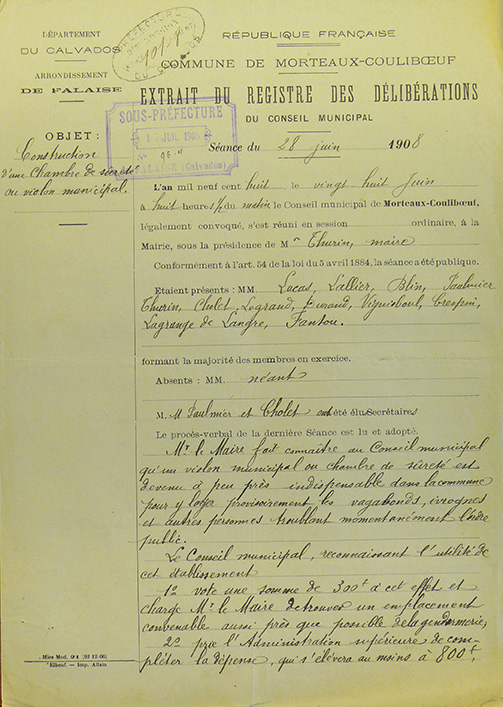 DÉPARTEMENT
DU CALVADOS
ARRONDISSEMENT
DE FALAISE
OBJET :
Construction
d'une Chambre de sûreté
ou violon municipal.
RÉPUBLIQUE FRANÇAISE
COMMUNE DE MORTEAUX-COULIBŒUF
EXTRAIT DU REGISTRE DES DÉLIBÉRATIONS
DU CONSEIL MUNICIPAL
SOUS-PRÉFECTURE
JUIL 1908
FALAISE (Calvados)
Séance du 28 juin 1908
L'an mil neuf cent huit le vingt huit Juin
à huit heures ½ du matin, le Conseil municipal de Morteaux-Coulibœuf,
légalement convoqué, s'est réuni en session ordinaire, à la
Mairie, sous la présidence de Mr Thurin, maire
Conformément à l'art. 54 de la loi du 5 avril 1884, la séance a été publique.
Etaient présents : MM. Lucas, Lallier, Blin, Faulmier
Thurin, Cholet, Legrand, Durand, Vigneboul, Crespin,
Lagrange de Langre, Fantou.
formant la majorité des membres en exercice.
Absents : MM. néant
M. M Paulmier et Cholet ont été élu Secrétaires
Le procès-verbal de la dernière Séance est lu et adopté.
Mr le Maire fait connaître au Conseil municipal
qu'un violon municipal ou chambre de sûreté est
devenu à peu près indispensable dans la commune
pour y loger provisoirement les vagabonds, ivrognes
et autres personnes troublant momentanément l'ordre
public.
Le Conseil municipal, reconnaissant l'utilité de
cet établissement
1º vote une somme de 300f à cet effet et
charge Mr le Maire de trouver un emplacement
convenable aussi près que possible de la gendarmerie,
2º prie l'Administration supérieure de com-
pléter la dépense, qui s'élèvera au moins à 800f,
Elbeuf. — Imp. Allain